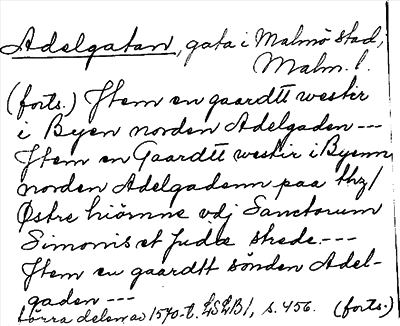 Adelgatan, gata i Malmö stad,
Malm. l.
(forts.) Jtem en gaardtt westir
i Byen norden Adelgaden ---
Jtem en Gaardtt westir i Byenn
norden Adelgadenn paa thz/
Østre hiömne vdj Sanctorum
Simonis et Judæ strede. ---
Jtem en gaardtt sönden Adel-
gaden ---
Norra delen av 1570-t. LSLB1, s. 456. (forts.)